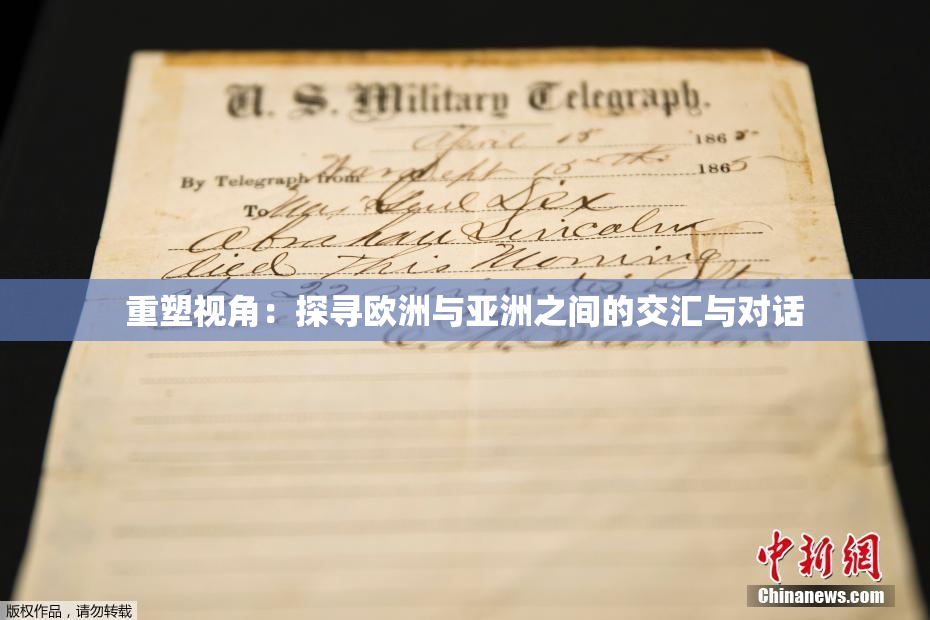 U. S. Military Telegraph.
April 15 1865
By Telegraph from War Dept 15th 1865
To Maj Genl Dix
Abraham Lincoln
died This Morning
at 22 minutes after
重塑视角：探寻欧洲与亚洲之间的交汇与对话
E. M. Stanton
中新网
Chinanews.com
版权作品，请勿转载